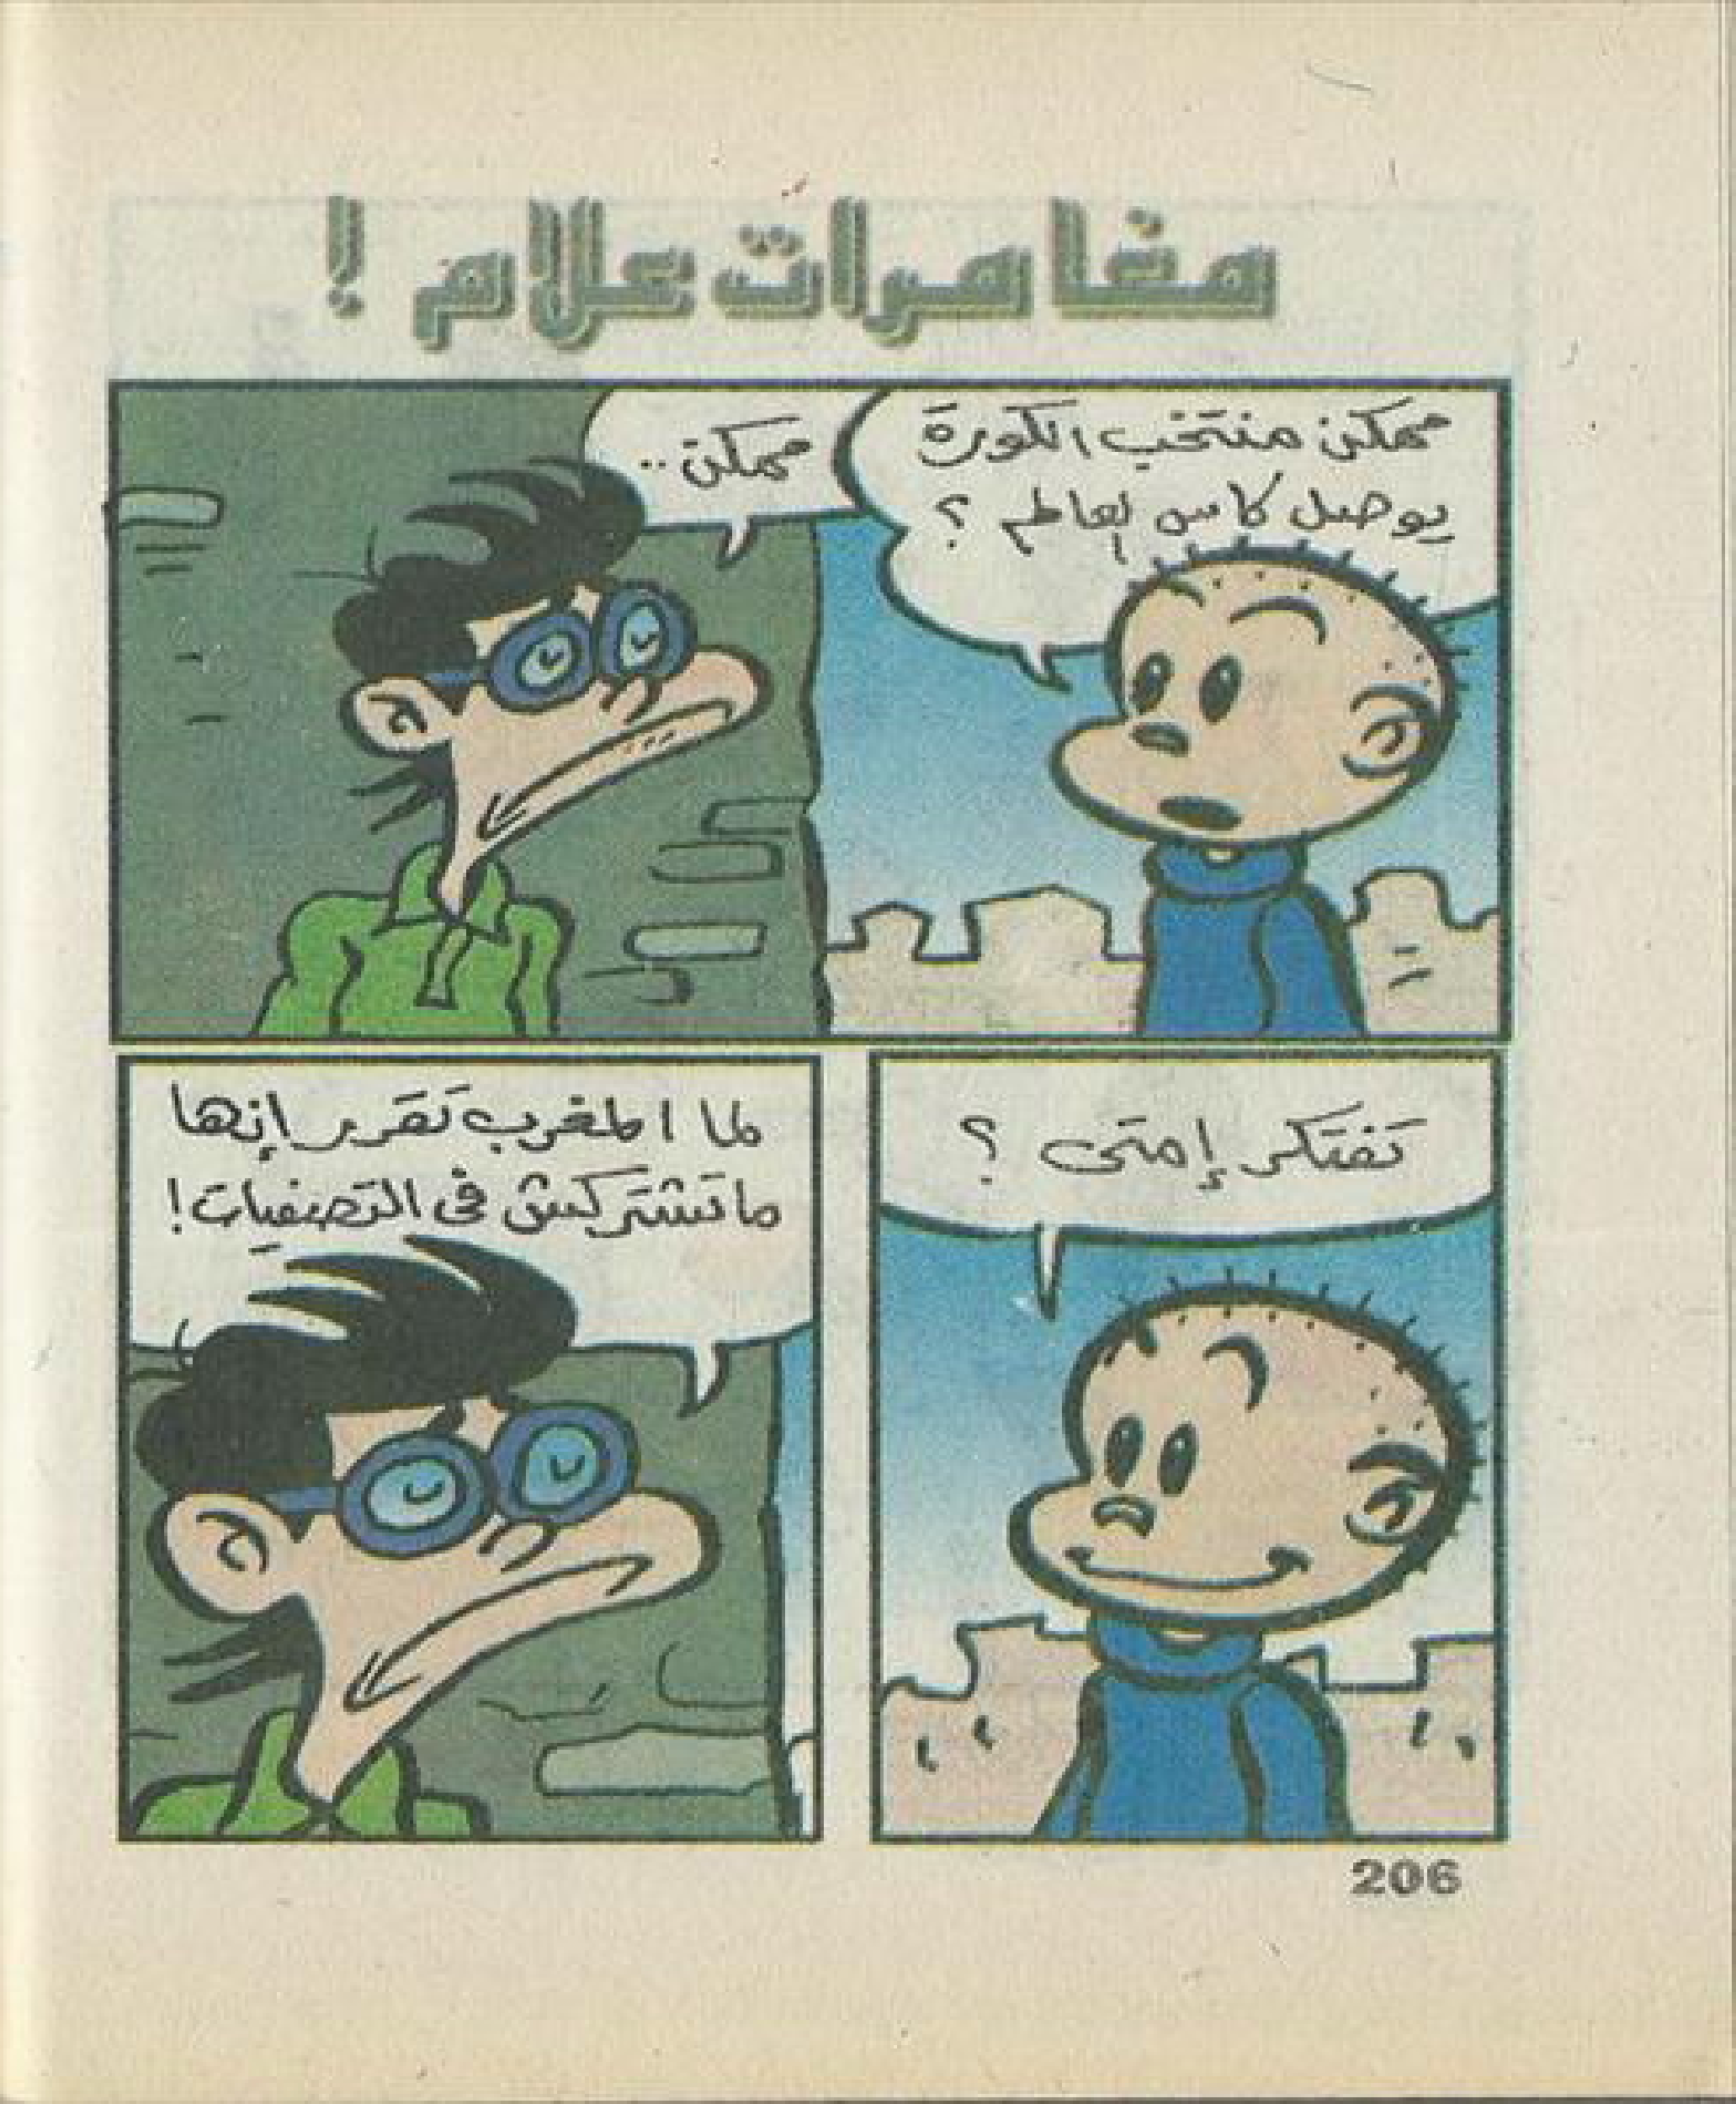 مغامرات علام !
ممكن منتخب الكورة
يوصل كاس العالم ؟
ممكن ..
تفتكر إمتى ؟
لما المغرب تقرر إنها
ماتشتركش فى التصفيات !
206